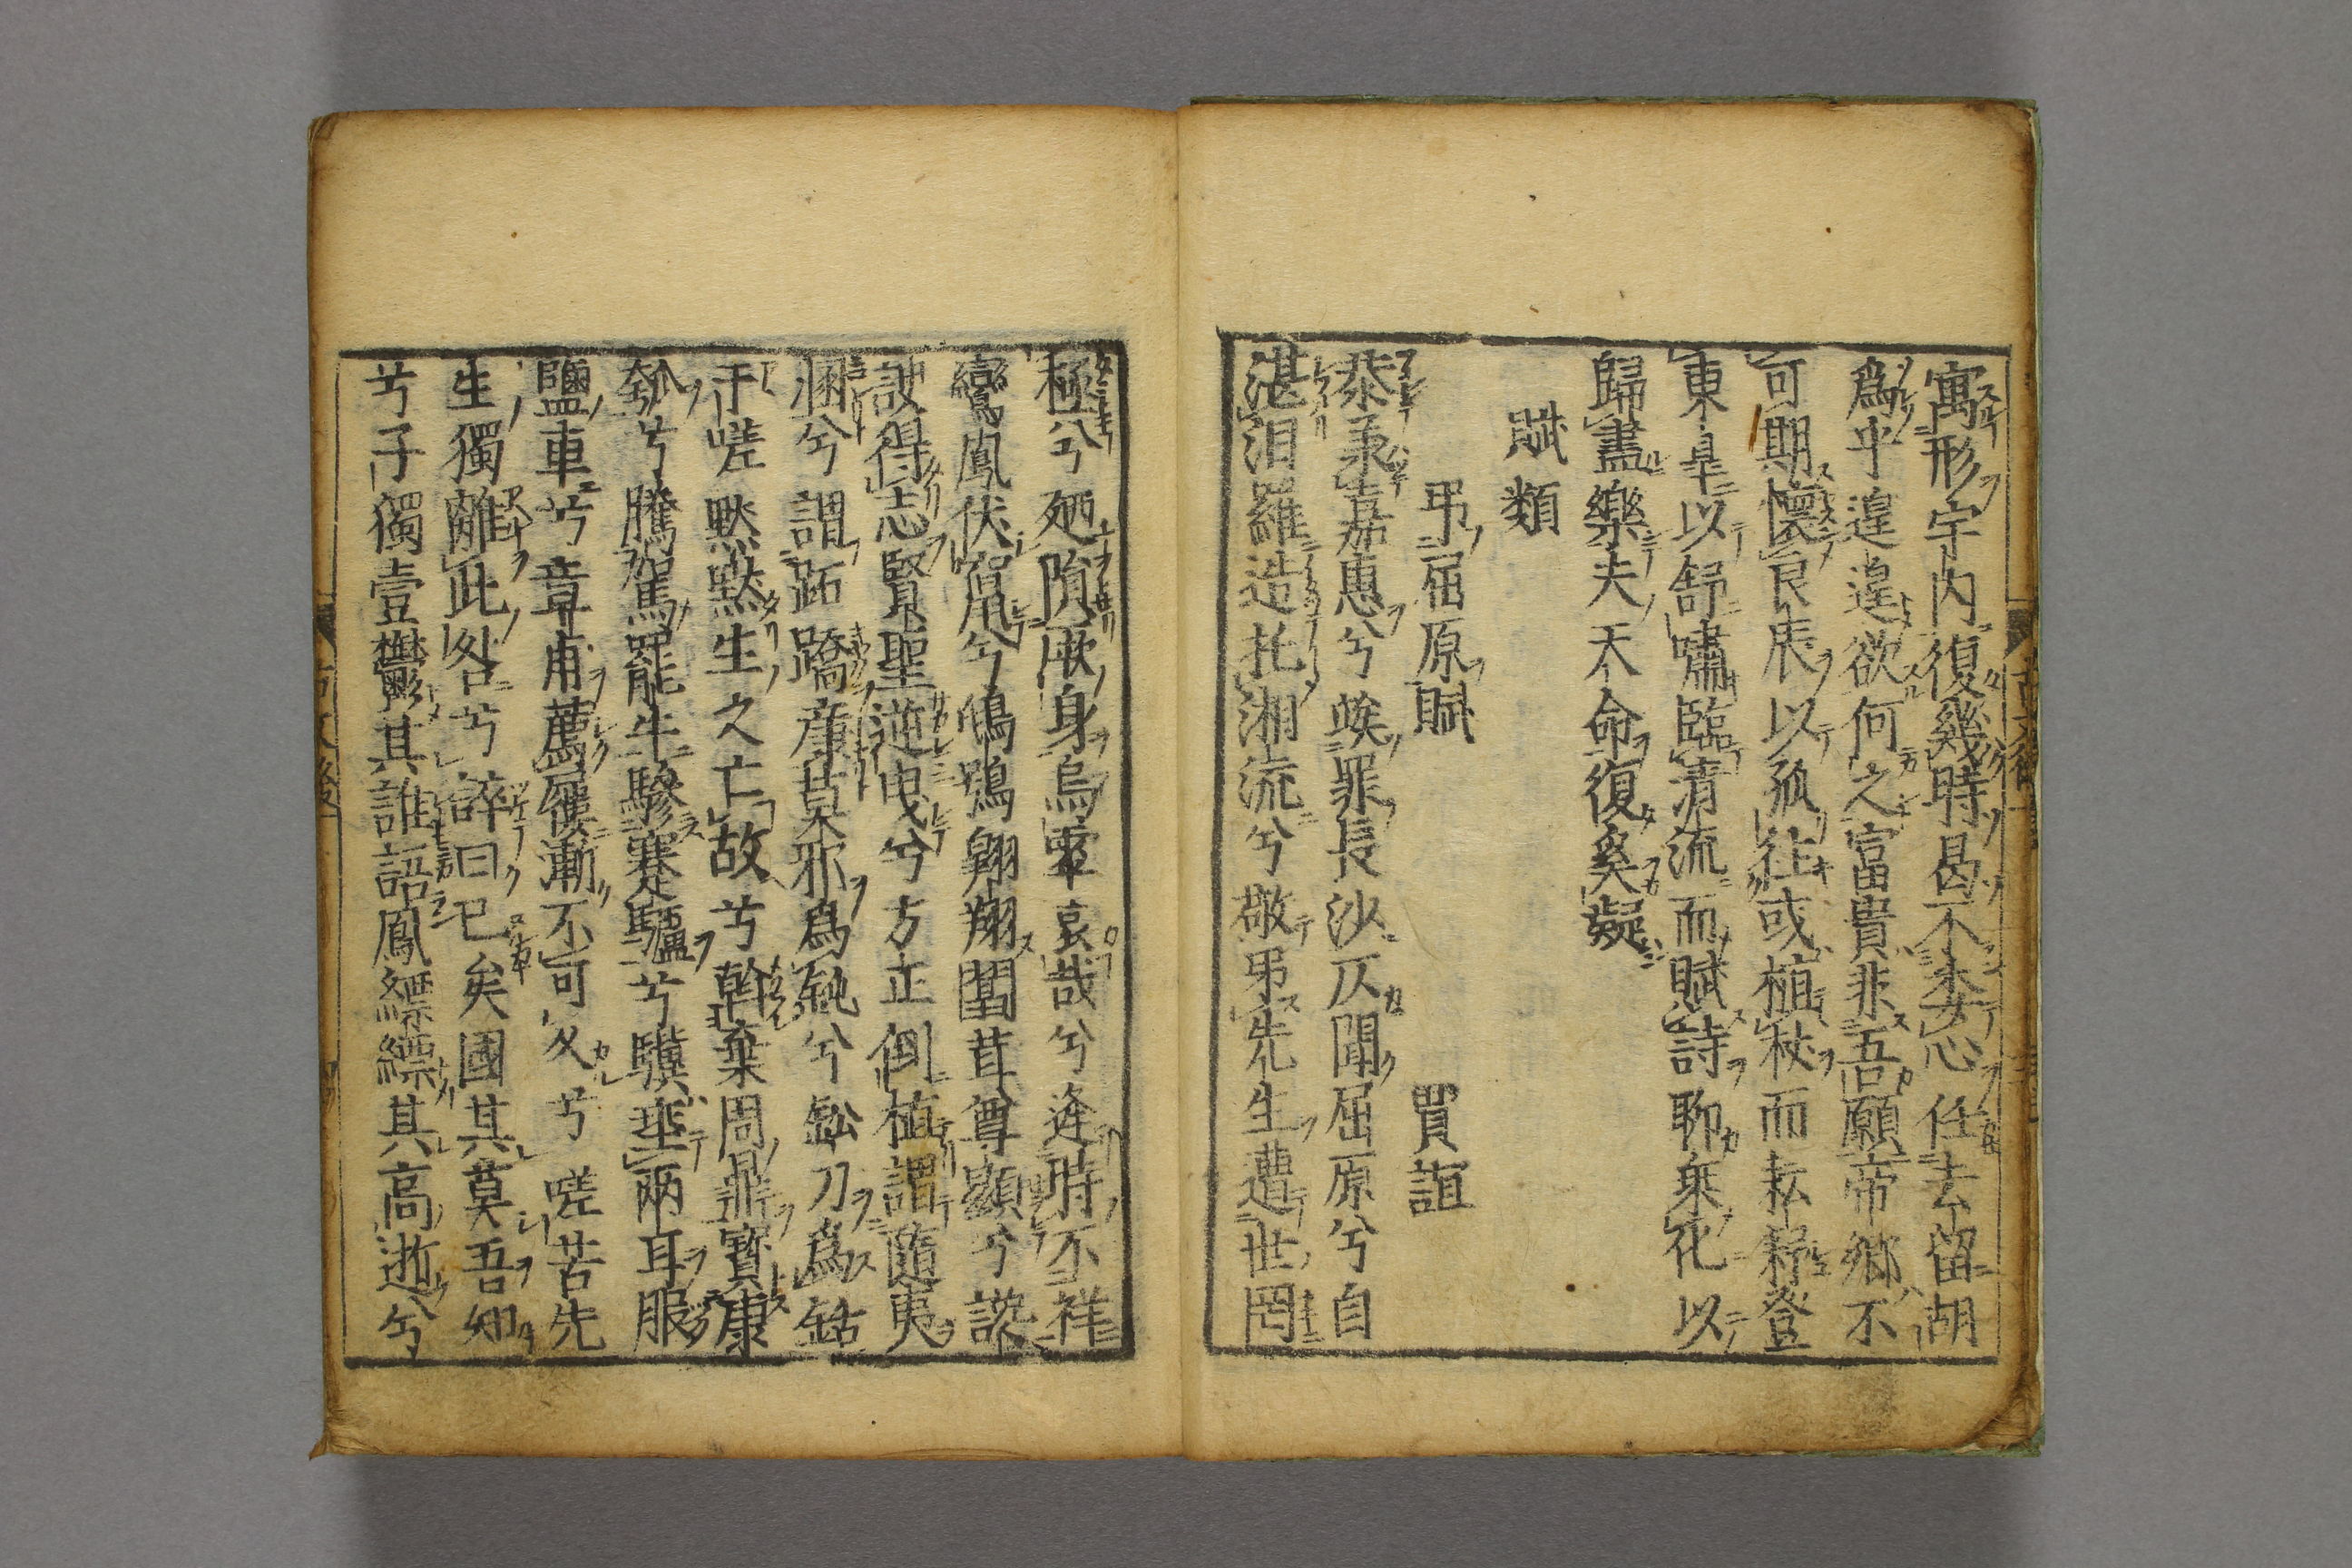 寓形宇内復幾時曷不委心任去留胡
爲乎遑遑欲何之富貴非吾願帝郷不
可期懷良辰以孤往或植杖而耘耔登
東皐以舒嘯臨清流而賦詩聊乘化以
歸盡樂夫天命復奚疑
賦類
弔屈原賦 賈誼
恭承嘉惠兮竢罪長沙仄聞屈原兮自
湛汨羅造托湘流兮敬弔先生遭世罔
極兮廼隕厥身烏虖哀哉兮逢時不祥
鸞鳳伏竄兮鴟鴞翱翔闒茸尊顯兮讒
諛得志賢聖逆曳兮方正倒植謂隨夷
溷兮謂跖蹻廉莫邪爲鈍兮鈆刀爲銛
于嗟默默生之亡故兮斡棄周鼎寳康
瓠兮騰駕罷牛驂蹇驢兮驥垂兩耳服
鹽車兮章甫薦屨漸不可久兮嗟苦先
生獨離此咎兮誶曰已矣國其莫吾知
兮子獨壹鬱其誰語鳳縹縹其高逝兮